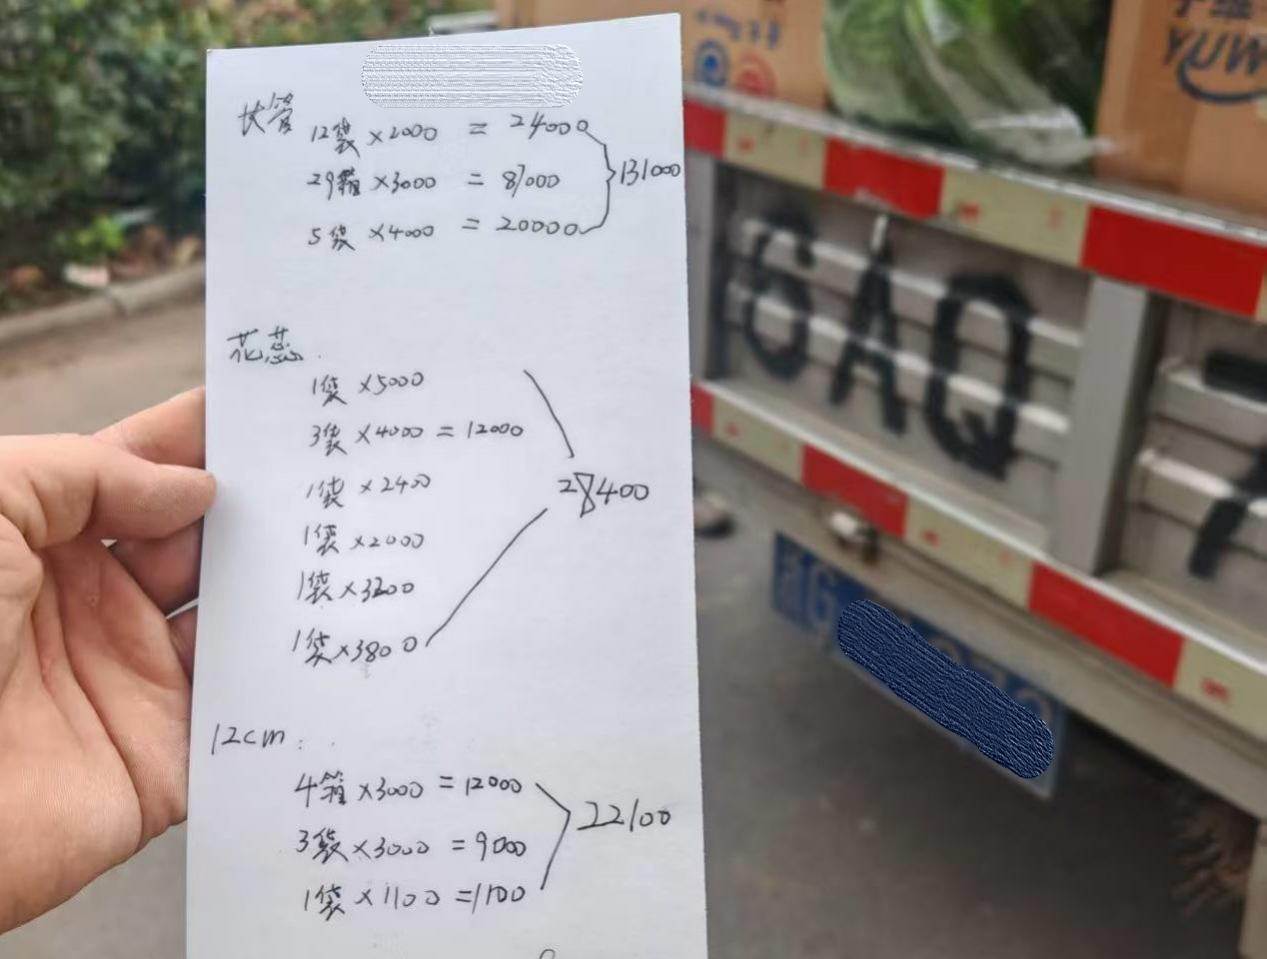 长管
12袋×2000 = 24000
29箱×3000 = 87000
5袋×4000 = 20000
131000
花蕊.
1袋×5000
3袋×4000=12000
1袋×2400
1袋×2000
1袋×3200
1袋×3800
28400
12cm:
4箱×3000=12000
3袋×3000=9000
1袋×1100=1100
22100
YUW
6AQ
G